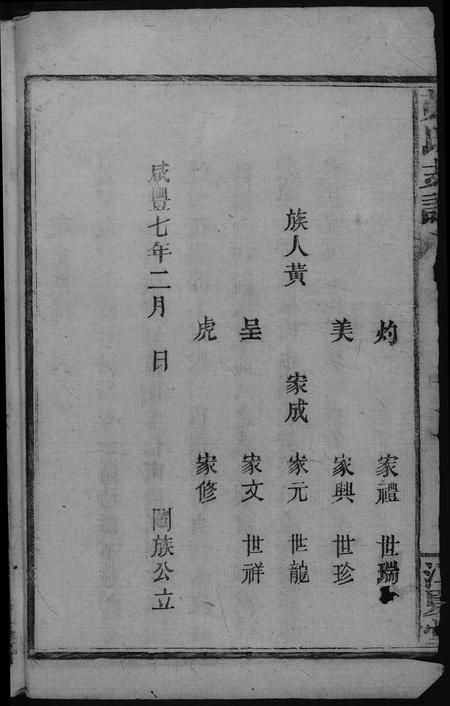 灼 家禮 世瑞
美 家興 世珍
族人黃 家成 家元 世龍
呈 家文 世祥
虎 家修
咸豐七年二月 日 闔族公立